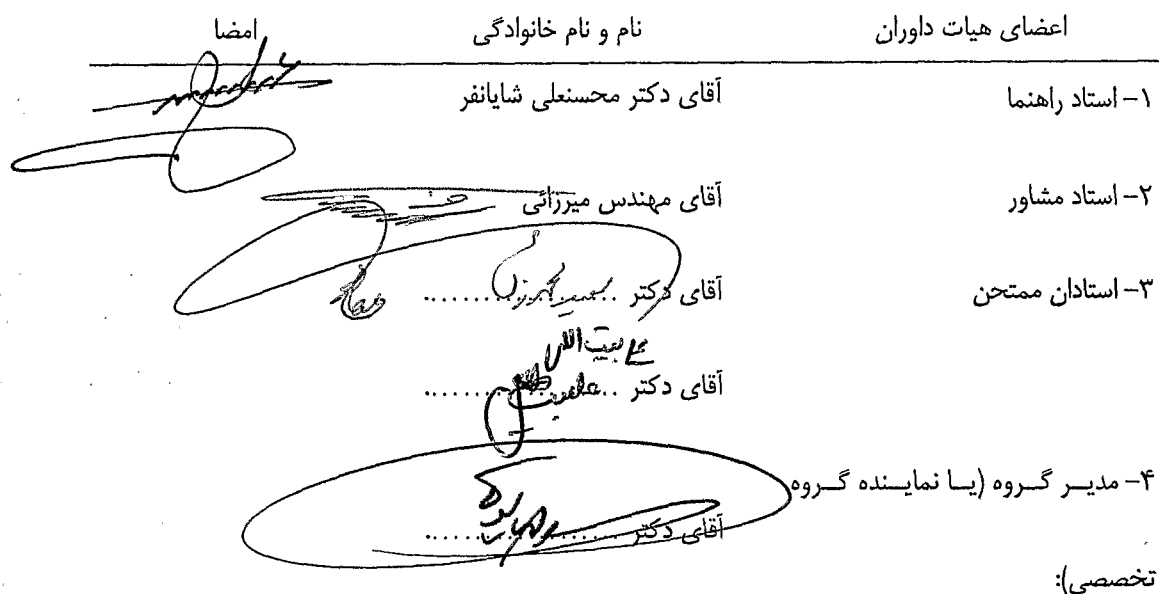 اعضای هیات داوران نام و نام خانوادگی امضا
۱- استاد راهنما آقای دکتر محسنعلی شایانفر
۲- استاد مشاور آقای مهندس میرزائی
۳- استادان ممتحن آقای دکتر
آقای دکتر
۴- مدیر گروه (یا نماینده گروه
آقای دکتر
تخصصی):